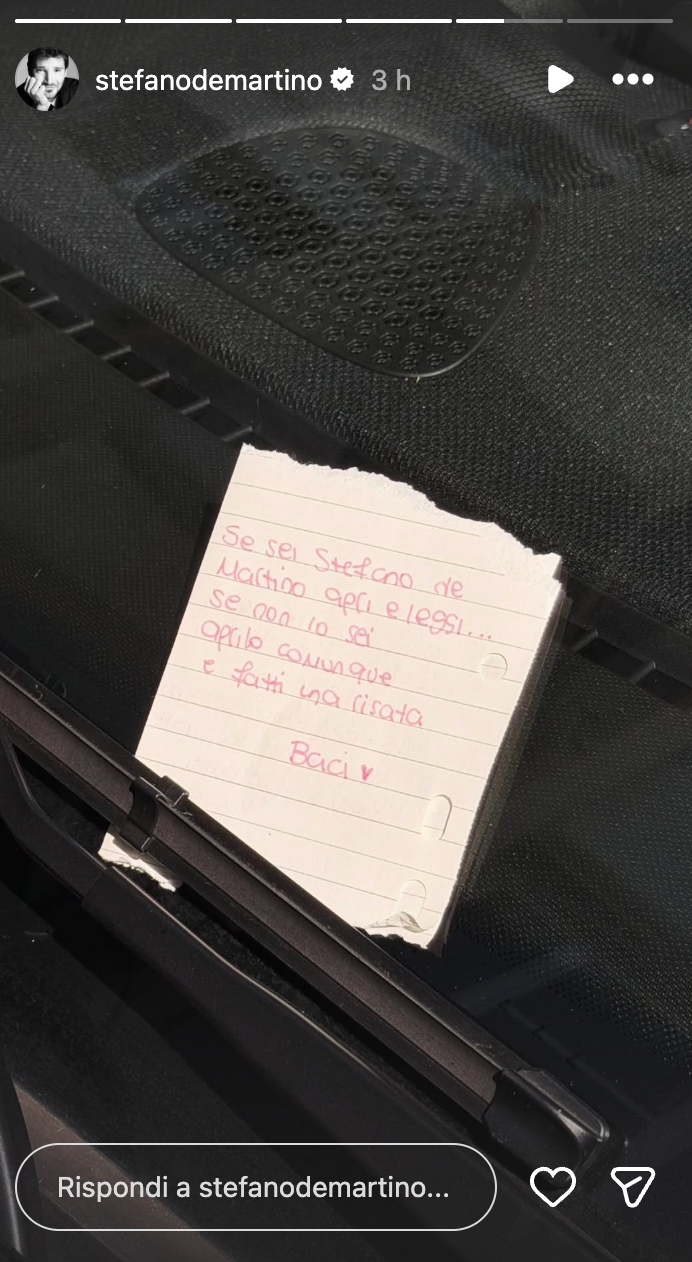 stefanodemartino 3 h
Se sei Stefano de
Martino apri e leggi...
se non lo sei
aprilo comunque
e fatti una risata
Baci ♥
Rispondi a stefanodemartino...